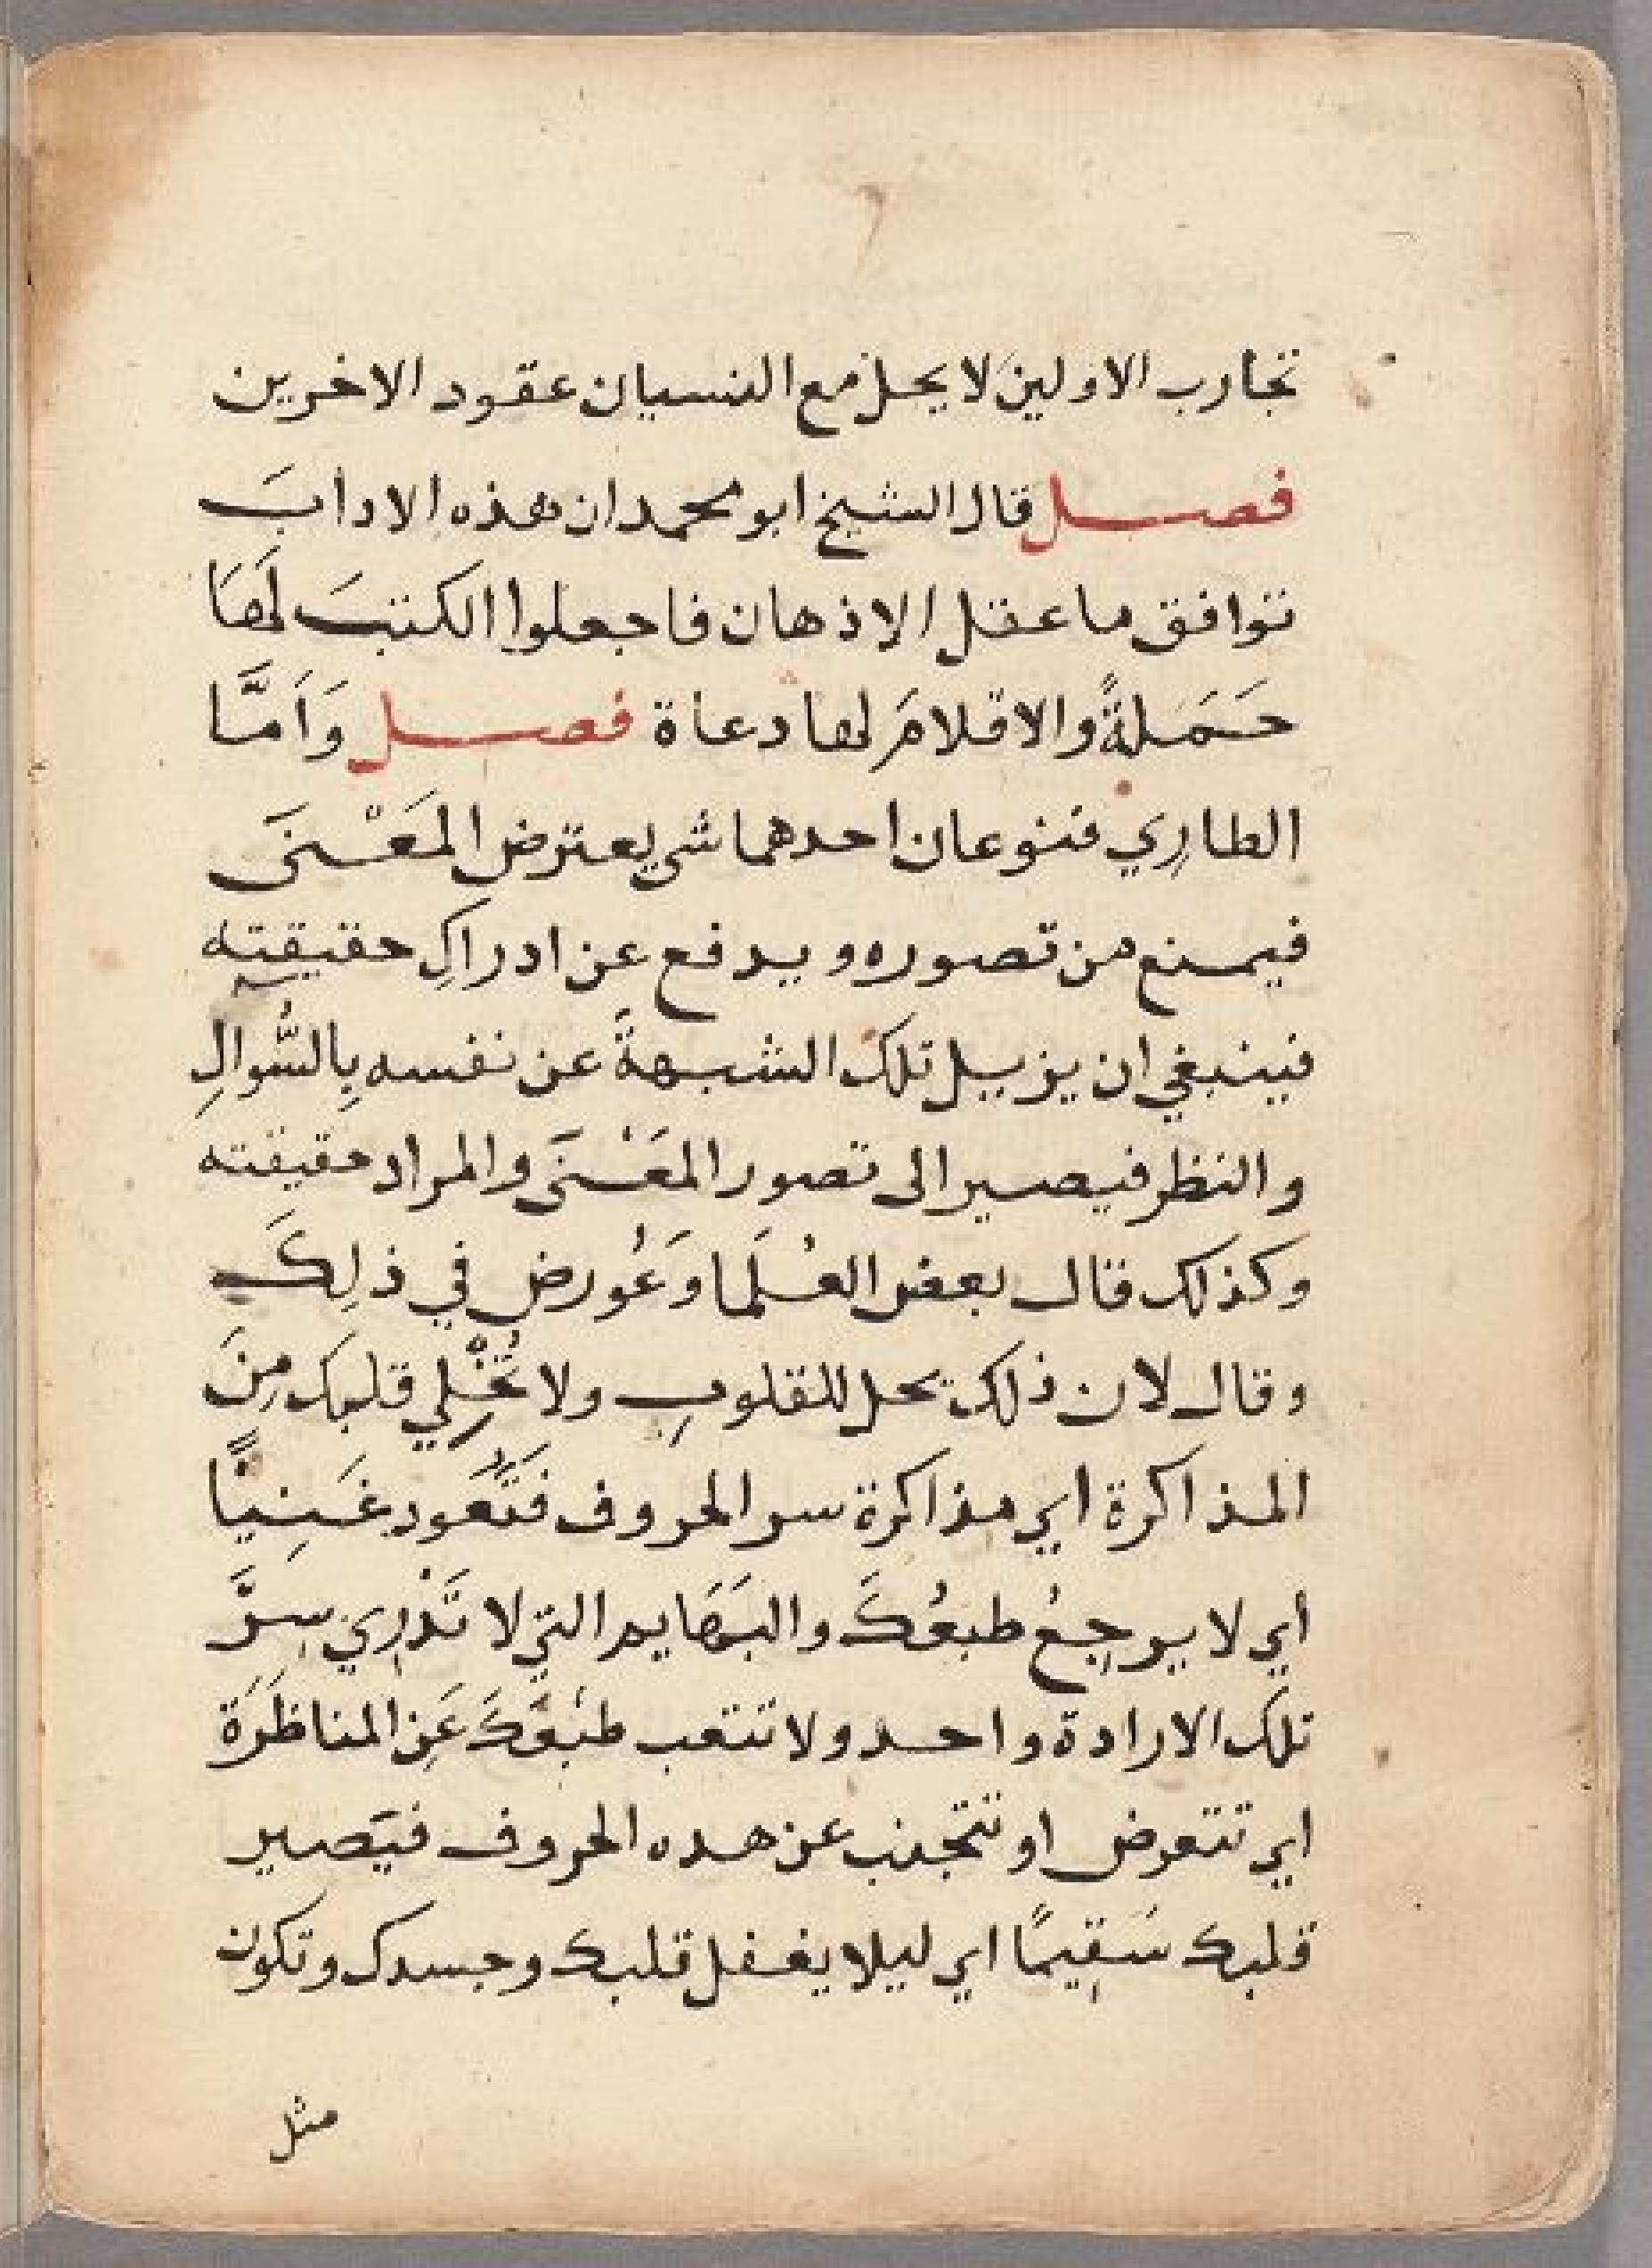 تجارب الاولينَ لا يحل مع النسيان عقود الاخرين
فصل قال الشيخ ابو محمد ان هذه الادابَ
توافق ما عقل الاذهان فاجعلوا الكتبَ لَهَا
حَمَلةً والاقلامَ لها دعاة فصل وَاَمَّا
الطارِي فنوعان احدهما شي يعترض المَعْنىَ
فيمنع من تصوره ويدفع عن ادراكِ حقيقته
فينبغي ان يزيل تلك الشبهةَ عن نفسه بِالسُّوالِ
والنظر فيصير الى تصور المَعْنىَ والمراد حقيقته
وكذلك قال بعض العُلَما وَعُورض في ذلِكَ
وقال لان ذلك يحل للقلوبِ ولا تُخْلي قلبك مِنَ
المذاكرة اي مذاكرة سر الحروف فَتَعُود غَنِيًّا
اي لا يرجِعُ طبعُكَ والبَهَايم التي لا تَدْرِي سِرَّ
تلك الارادة واحد ولا تتعب طَبْعَكَ عَنِ المناظَرَة
اي تتعرض او تتجنب عن هده الحروف فيَصير
قلبك سَقِيمًا اي ليلا يغفل قلبك وجسدك وتكون
مثل